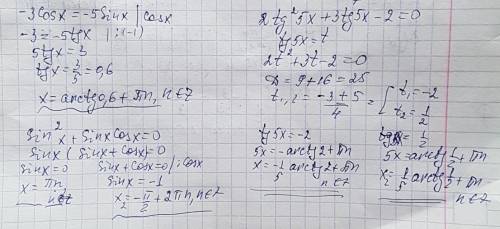 -3cosx = -5sinx | cosx
-3 = -5tgx | :(-1)
5tgx = 3
tgx = 3/5 = 0,6
x = arctg0,6 + πn, n∈Z
sin²x + sinxcosx = 0
sinx (sinx + cosx) = 0
sinx = 0    sinx + cosx = 0 | :cosx
x = πn,    sinx = -1
n∈Z    x₂ = -π/2 + 2πn, n∈Z
2tg²5x + 3tg5x - 2 = 0
tg5x = t
2t² + 3t - 2 = 0
D = 9 + 16 = 25
t₁,₂ = (-3 ± 5)/4 = [ t₁ = -2
t₂ = 1/2
tg5x = -2    = 1/2
5x = -arctg2 + πn    5x = arctg 1/2 + πn
x = -1/5 arctg2 + πn    x₂ = 1/5 arctg 1/2 + πn
n∈Z    n∈Z